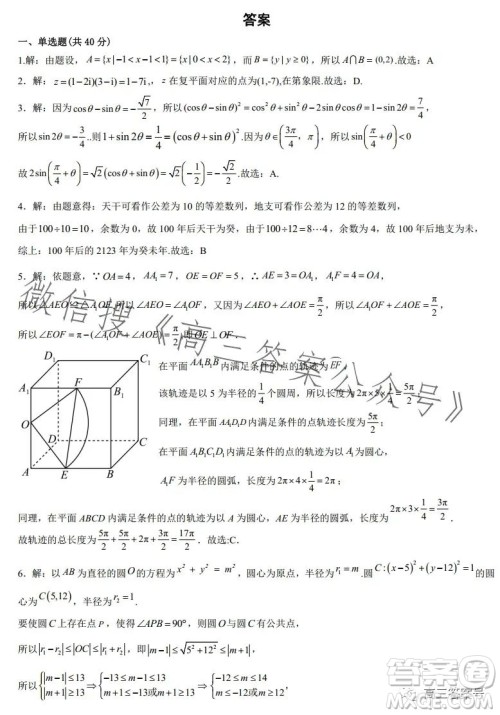 答案
一、单选题(共 40 分)
1.解：由题设，A={x|-1<x-1<1}={x|0<x<2}，而B={y|y≥0}，所以A∩B=(0,2).故选：A
2．解：z=(1-2i)(3-i)=1-7i.，z在复平面对应的点为(1,-7),在第象限.故选：D.
3．解：因为cosθ-sinθ=-√7/2，所以(cosθ-sinθ)²=cos²θ+sin²θ-2sinθcosθ=1-sin2θ=7/4，
所以sin2θ=-3/4..则1+sin2θ=1/4=(cosθ+sinθ)².因为θ∈(3π/4,π),所以sin(π/4+θ)<0
故2sin(π/4+θ)=√2(cosθ+sinθ)=√2(-1/2)=-√2/2.故选：A.
4．解：由题意得：天干可看作公差为 10 的等差数列，地支可看作公差为 12 的等差数列，
由于100÷10=10，余数为 0，故 100 年后天干为癸，由于100÷12=8⋯4，余数为 4，故 100 年后地支为未，
综上：100 年后的 2123 年为癸未年.故选：B
5．解：依题意，∵OA=4，AA₁=7，OE=OF=5，∴OA₁=3，
所以∠AEO=∠A₁OF，所以∠AEO=∠A₁OF，又因为∠AOE+∠AEO=π/2，
所以∠EOF=π-(∠A₁OF+∠AOE)=π/2，即OE⊥OF，
在平面AA₁B₁B内满足条件的点的轨迹为EF，
该轨迹是以 5 为半径的1/4个圆周，所以长度为2π×5×1/4=5π/2；
同理，在平面AA₁D₁D内满足条件的点轨迹长度为5π/2
在平面A₁B₁C₁D₁内满足条件的点的轨迹为以A₁为圆心，
A₁F为半径的圆弧，长度为2π×4×1/4=2π；
D₁
C₁
A₁
F
B₁
O
D
C
A
E
B
同理，在平面ABCD内满足条件的点的轨迹为以A为圆心，AE为半径为圆弧，长度为2π×3×1/4=3π/2.
故轨迹的总长度为5π/2+5π/2+2π+3π/2=17π/2.故选:C.
6．解：以AB为直径的圆O的方程为x²+y²=m²，圆心为原点，半径为r₁=m.圆C:(x-5)²+(y-12)²=1的圆
心为C(5,12)，半径为r₂=1.
要使圆C上存在点P，使得∠APB=90°，则圆O与圆C有公共点，
所以|r₁-r₂|≤|OC|≤|r₁+r₂|，即|m-1|≤√(5²+12²)≤|m+1|，
所以{|m-1|≤13 |m+1|≥13⇒{-13≤m-1≤13 m+1≤-13或m+1≥13⇒{-12≤m≤14 m≤-14或m≥12，
微信搜《高三答案公众号》
高三答案号
答案圈